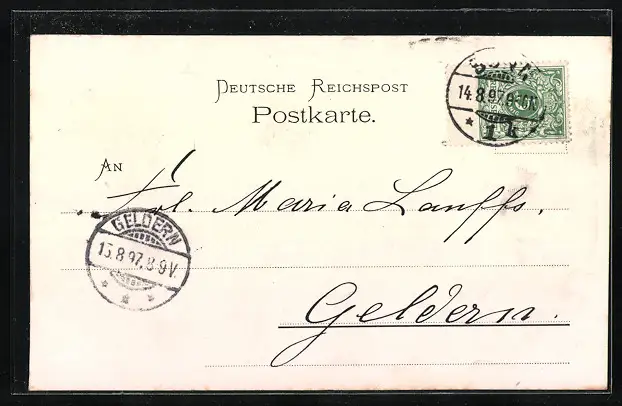 DEUTSCHE REICHSPOST
Postkarte.
14.8.97
1 k
AN
Frl. Maria Lauffs.
GELDERN
15.8.97.8-9V.
Geldern.